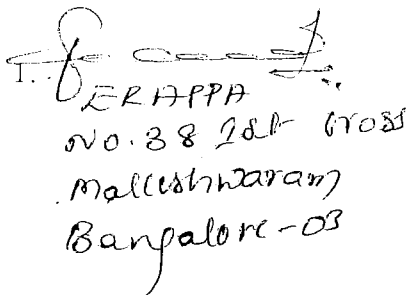 ERAPPA
NO. 38 1st Cross
Malleshwaram
Bangalore-03